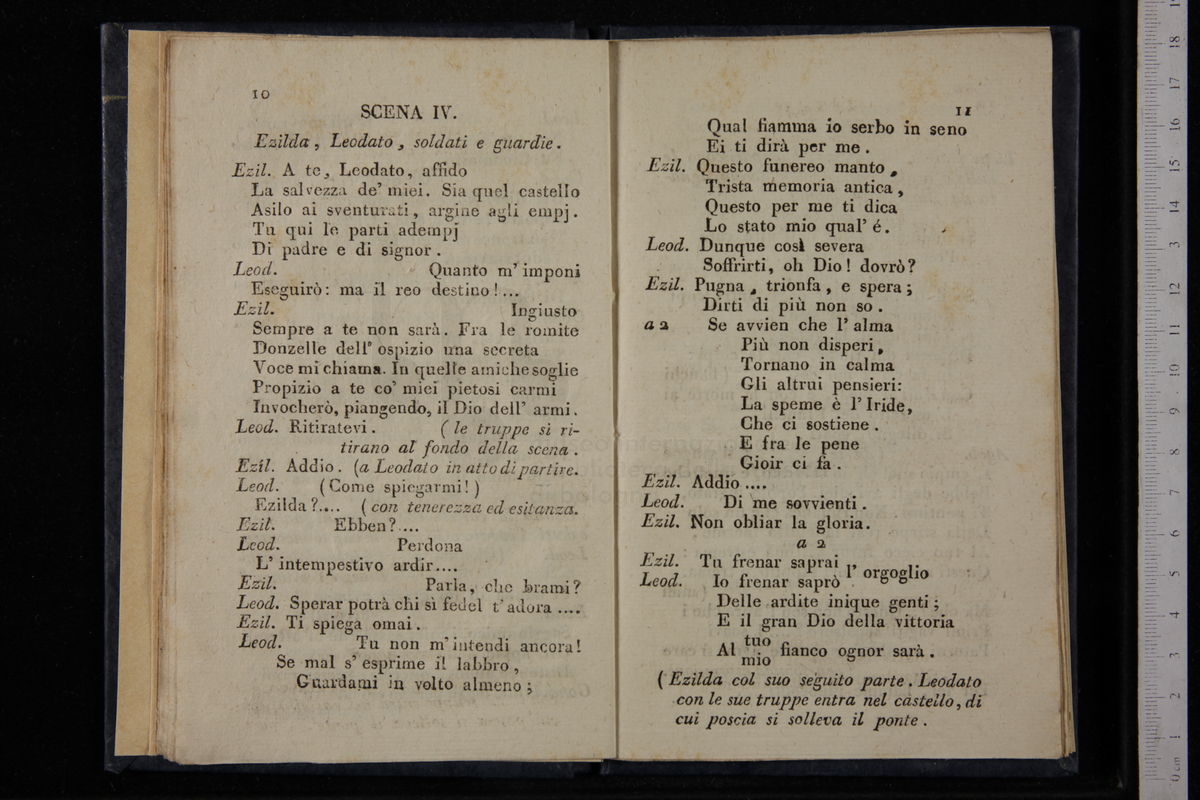 10
SCENA IV.
Ezilda, Leodato, soldati e guardie.
Ezil. A te, Leodato, affido
La salvezza de' miei. Sia quel castello
Asilo ai sventurati, argine agli empj.
Tu qui le parti adempj
Di padre e di signor.
Leod. Quanto m' imponi
Eseguirò: ma il reo destino!...
Ezil. Ingiusto
Sempre a te non sarà. Fra le romite
Donzelle dell' ospizio una secreta
Voce mi chiama. In quelle amiche soglie
Propizio a te co' miei pietosi carmi
Invocherò, piangendo, il Dio dell' armi.
Leod. Ritiratevi. (le truppe si ri-
tirano al fondo della scena.
Ezil. Addio. (a Leodato in atto di partire.
Leod. (Come spiegarmi!)
Ezilda?.... (con tenerezza ed esitanza.
Ezil. Ebben?....
Leod. Perdona
L' intempestivo ardir....
Ezil. Parla, che brami?
Leod. Sperar potrà chi sì fedel t' adora ....
Ezil. Ti spiega omai.
Leod. Tu non m' intendi ancora!
Se mal s' esprime il labbro,
Guardami in volto almeno;
11
Qual fiamma io serbo in seno
Ei ti dirà per me.
Ezil. Questo funereo manto,
Trista memoria antica,
Questo per me ti dica
Lo stato mio qual' é.
Leod. Dunque così severa
Soffrirti, oh Dio! dovrò?
Ezil. Pugna, trionfa, e spera;
Dirti di più non so.
a 2 Se avvien che l' alma
Più non disperi,
Tornano in calma
Gli altrui pensieri:
La speme è l' Iride,
Che ci sostiene.
E fra le pene
Gioir ci fa.
Ezil. Addio ....
Leod. Di me sovvienti.
Ezil. Non obliar la gloria.
a 2
Ezil. Tu frenar saprai
Leod. Io frenar saprò l' orgoglio
Delle ardite inique genti;
E il gran Dio della vittoria
Al tuo
mio fianco ognor sarà.
(Ezilda col suo seguito parte. Leodato
con le sue truppe entra nel castello, di
cui poscia si solleva il ponte.